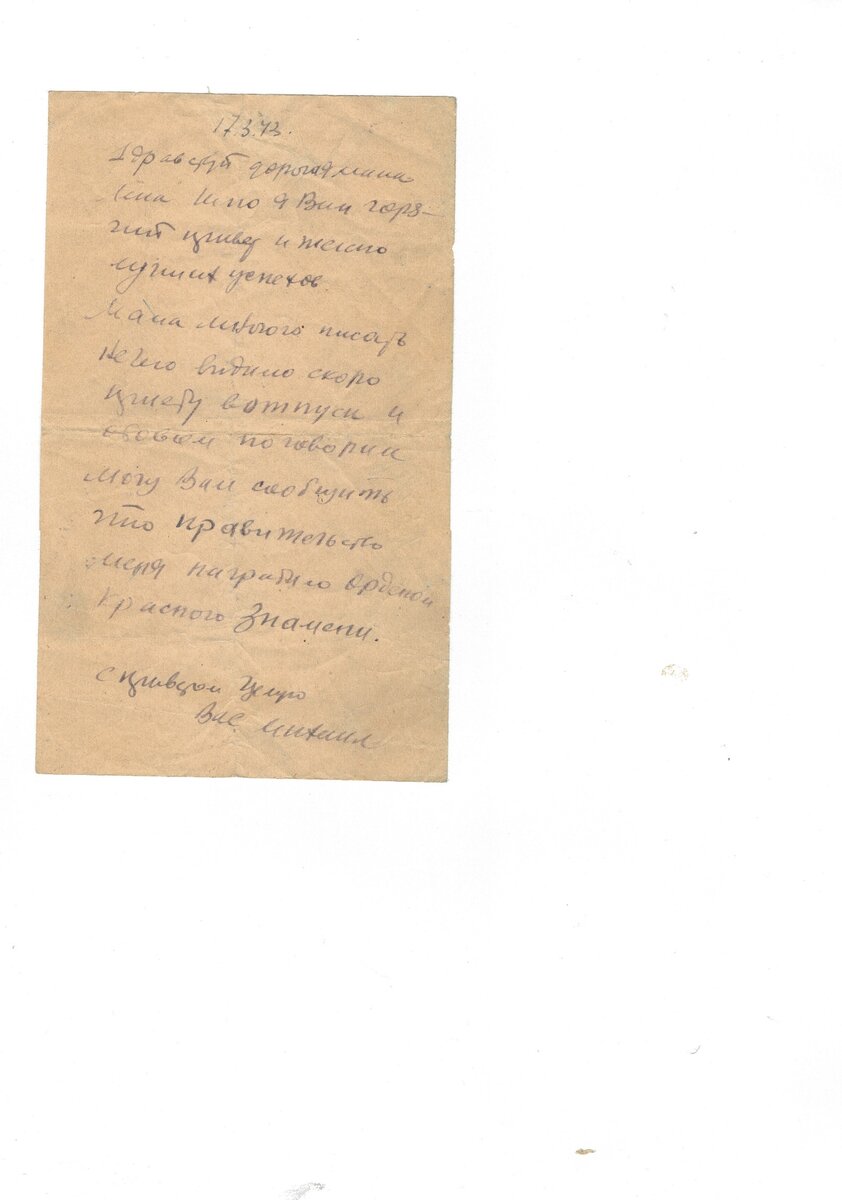 17.3.43.
Здравствуй дорогая мама
шлю я Вам горя-
чий привет и желаю
лучших успехов.
Мама многого писать
нечего видимо скоро
приеду вотпуск и
обовсем поговорим
Могу Вам сообщить
что правительство
меня наградило Орденом
Красного Знамени.
с приветом
Ваш Михаил